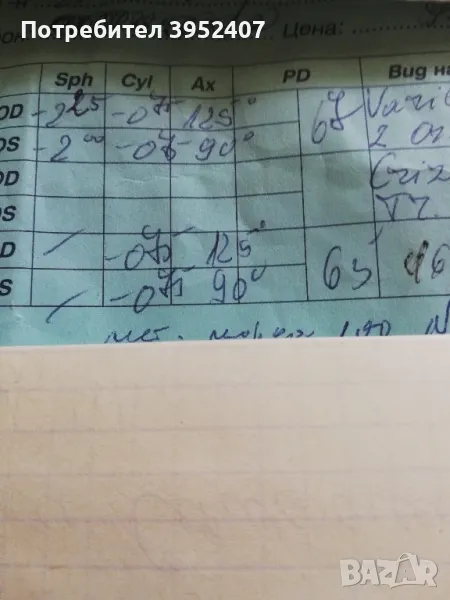 Потребител 3952407
Цена:
Sph Cyl Ax PD Bug на
OD -2 25 -0 75 125° 67 Vari
OS -2 00 -0 75 90° 2
OD Criz
OS Tr.
D / -0 75 125° 63 46
S / -0 75 90°
BAZAR